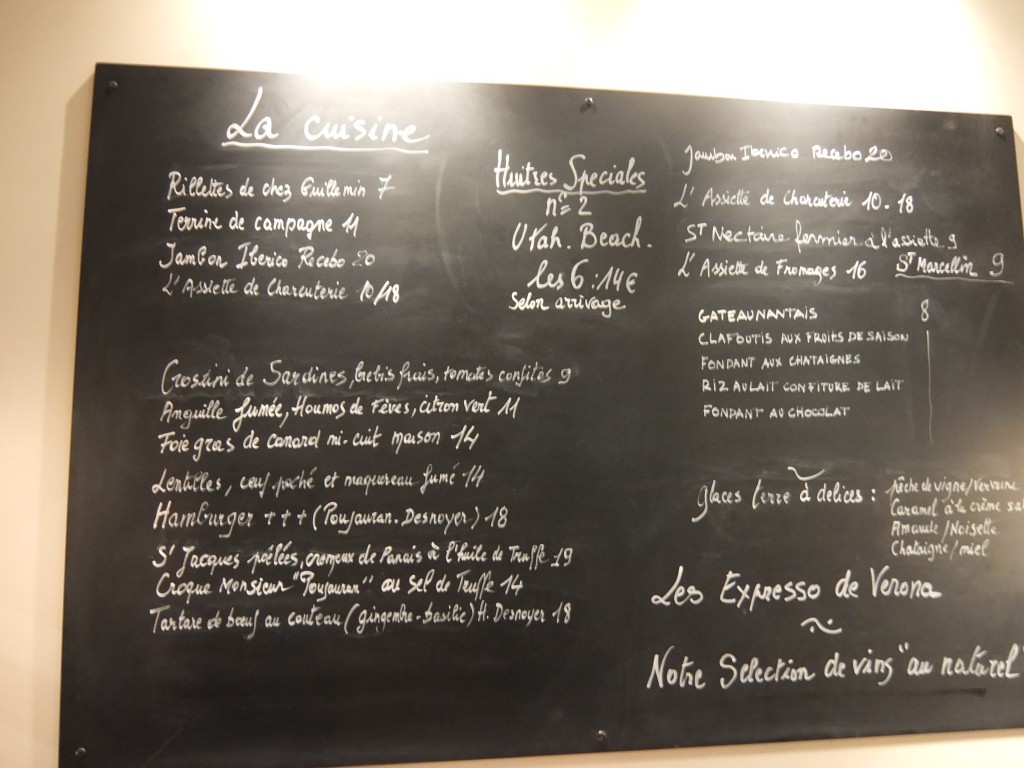 La cuisine
Rillettes de chez Guillemin 7
Terrine de campagne 11
Jambon Iberico Recebo 20
L'Assiette de Charcuterie 10/18
Huitres Speciales
n° 2
Utah. Beach.
les 6 : 14€
Selon arrivage
Crostini de Sardines, brebis frais, tomates confites 9
Anguille fumée, Houmos de Fèves, citron vert 11
Foie gras de canard mi-cuit maison 14
Lentilles, oeuf poché et maquereau fumé 14
Hamburger +++ (Poujauran. Desnoyer) 18
St Jacques poêlées, cremeux de Panais à l'huile de Truffe 19
Croque Monsieur "Poujauran" au sel de Truffe 14
Tartare de bœuf au couteau (gingembre-basilic) H. Desnoyer 18
Jambon Iberico Recebo 20
L'Assiette de Charcuterie 10-18
St Nectaire fermier à l'assiette 9
L'Assiette de Fromages 16 St Marcellin 9
GATEAU NANTAIS 8
CLAFOUTIS AUX FRUITS DE SAISON
FONDANT AUX CHATAIGNES
RIZ AU LAIT CONFITURE DE LAIT
FONDANT AU CHOCOLAT
glaces terre à delices : pêche de vigne/Verveine
Caramel à la crème sal
Amande/Noisette
Chataigne/miel
Les Expresso de Verona
~
Notre Selection de vins "au naturel"